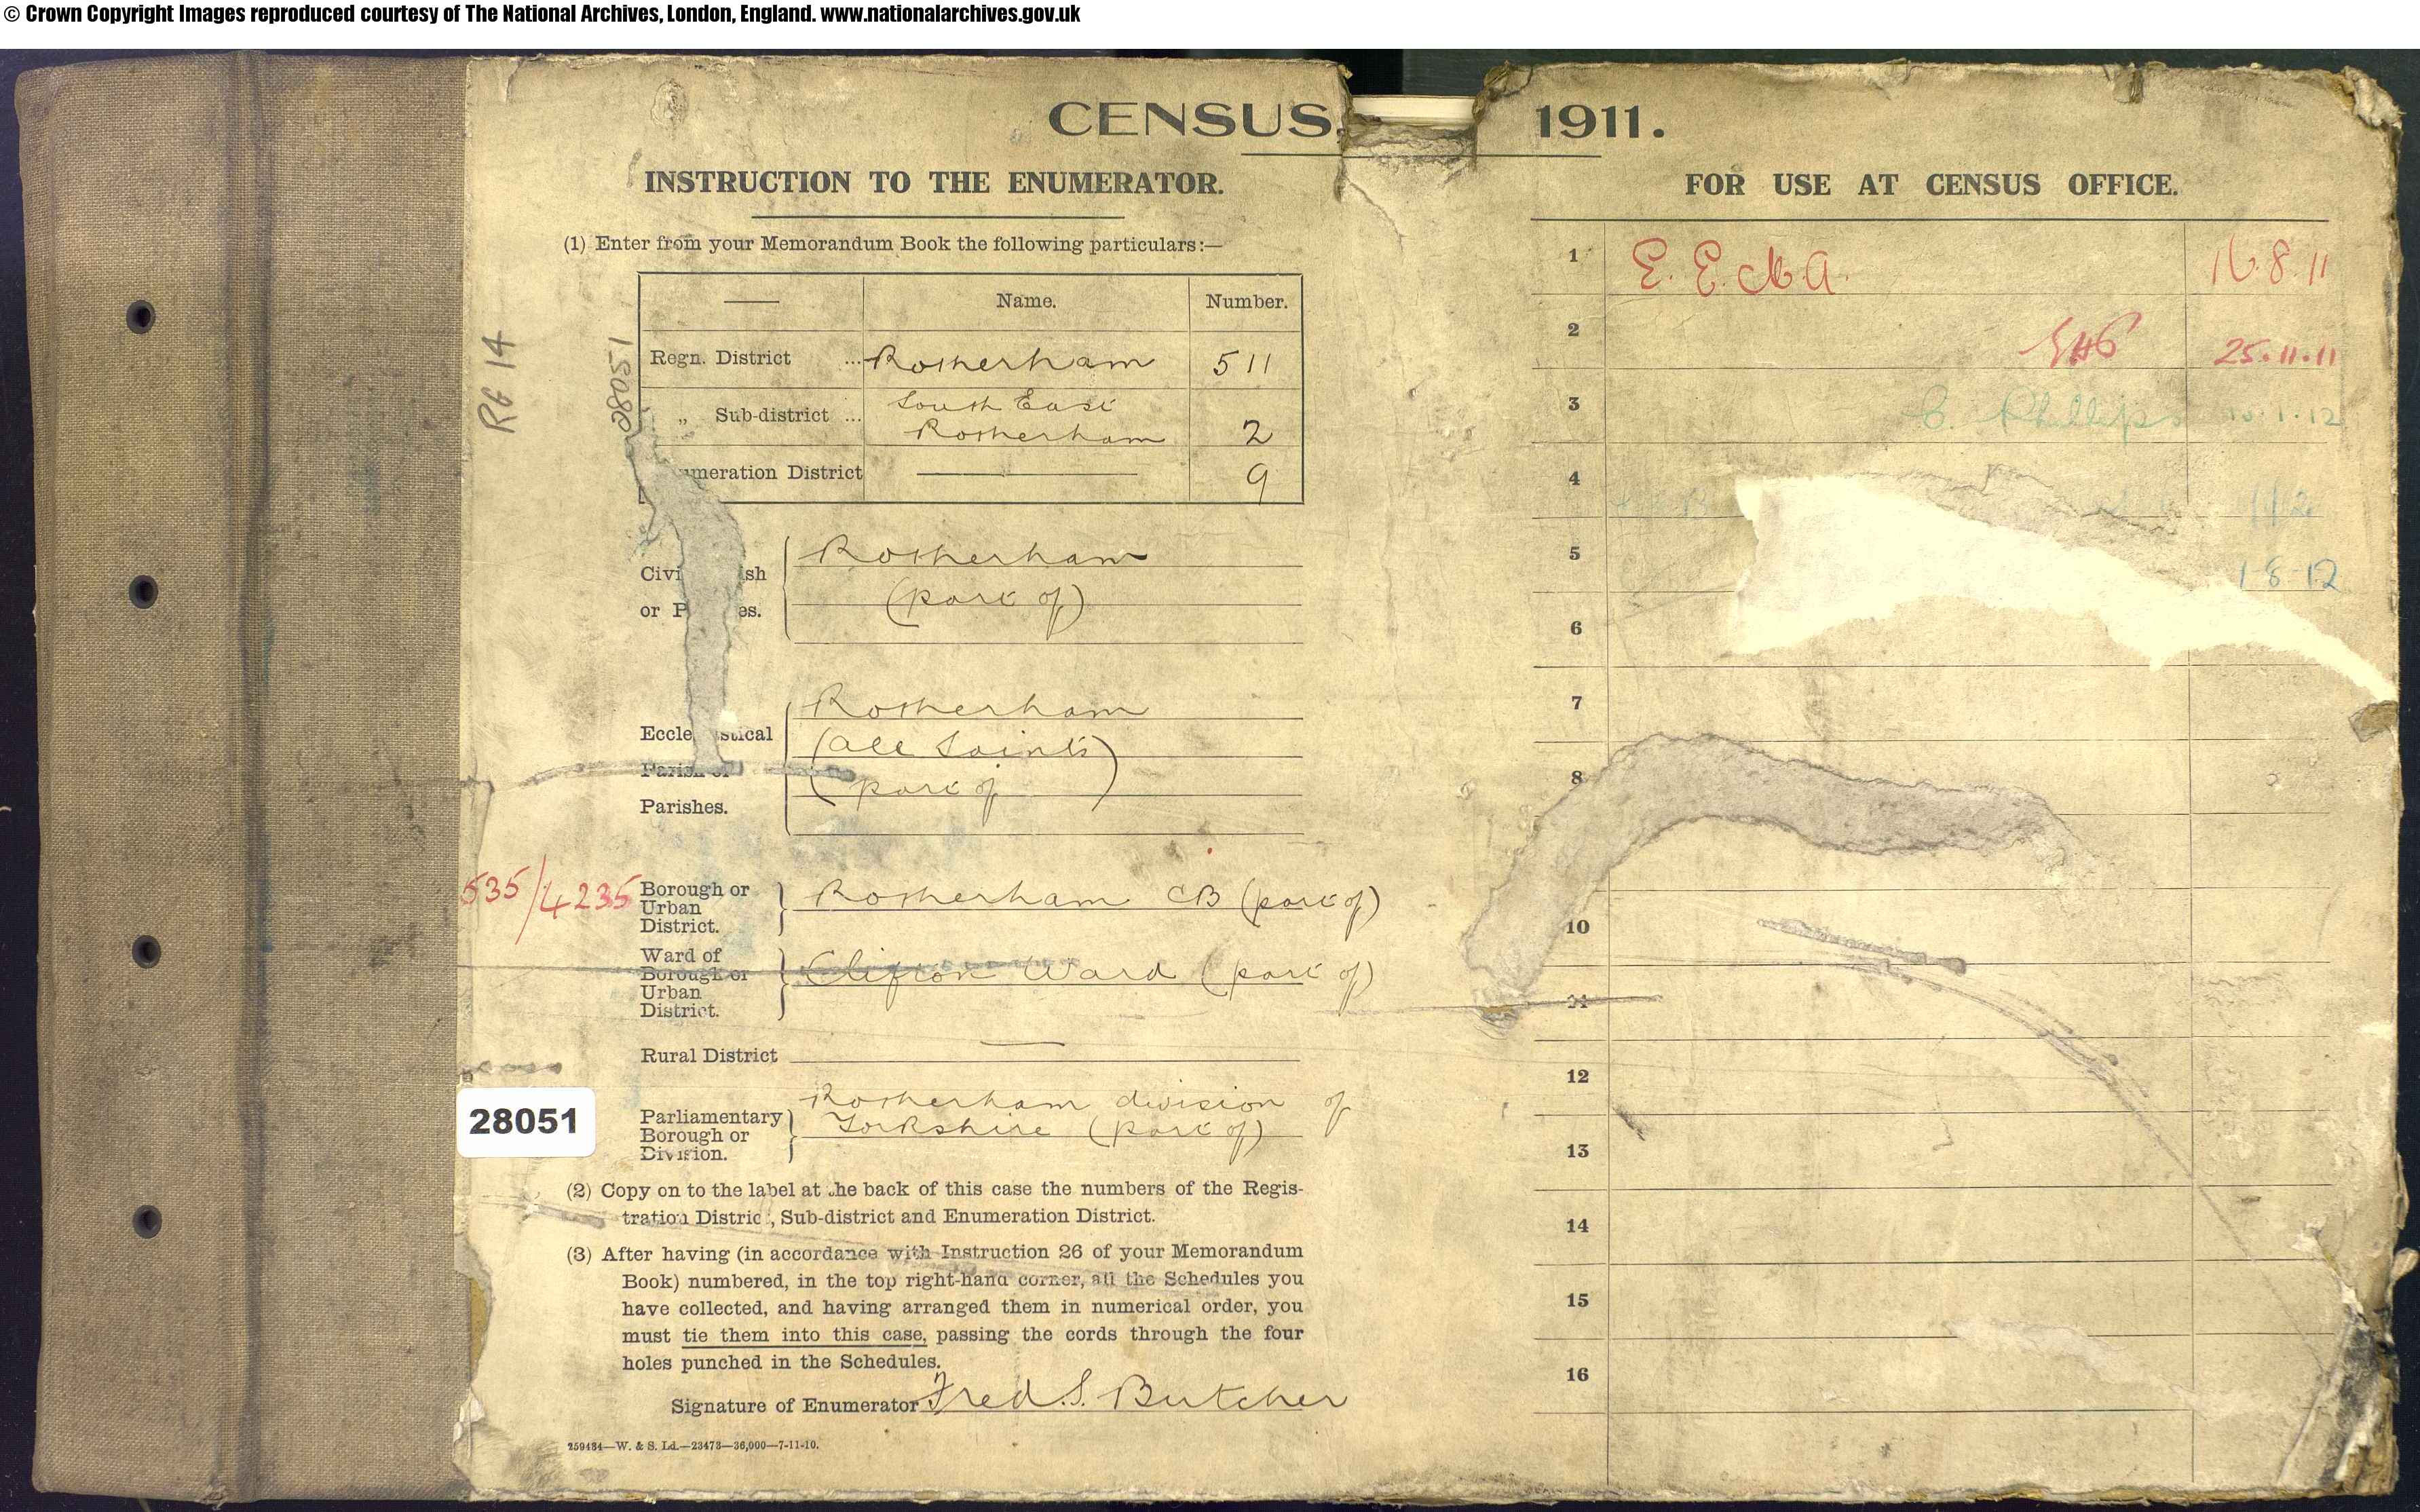 © Crown Copyright Images reproduced courtesy of The National Archives, London, England. www.nationalarchives.gov.uk
CENSUS, 1911.
INSTRUCTION TO THE ENUMERATOR.
(1) Enter from your Memorandum Book the following particulars:—
Name. Number.
Regn. District ... Rotherham 511
„ Sub-district ... South East
Rotherham 2
meration District 9
RG 14
08051
Civi sh
or P es.
Rotherham
(part of)
Eccle stical
Parish or
Parishes.
Rotherham
(All Saints)
(part of)
535/4235
Borough or
Urban
District.
Rotherham CB (part of)
Ward of
Borough or
Urban
District.
Clifton Ward (part of)
Rural District —
28051
Parliamentary
Borough or
Division.
Rotherham division of
Yorkshire (part of)
(2) Copy on to the label at the back of this case the numbers of the Regis-
tration District, Sub-district and Enumeration District.
(3) After having (in accordance with Instruction 26 of your Memorandum
Book) numbered, in the top right-hand corner, all the Schedules you
have collected, and having arranged them in numerical order, you
must tie them into this case, passing the cords through the four
holes punched in the Schedules.
Signature of Enumerator Fred. S. Butcher
259484—W. & S. Ld.—23473—36,000—7-11-10.
FOR USE AT CENSUS OFFICE.
1 16.8.11
2 25.11.11
3 C. Phillips 10.1.12
4
5 1-8-12
6
7
8
10
11
12
13
14
15
16